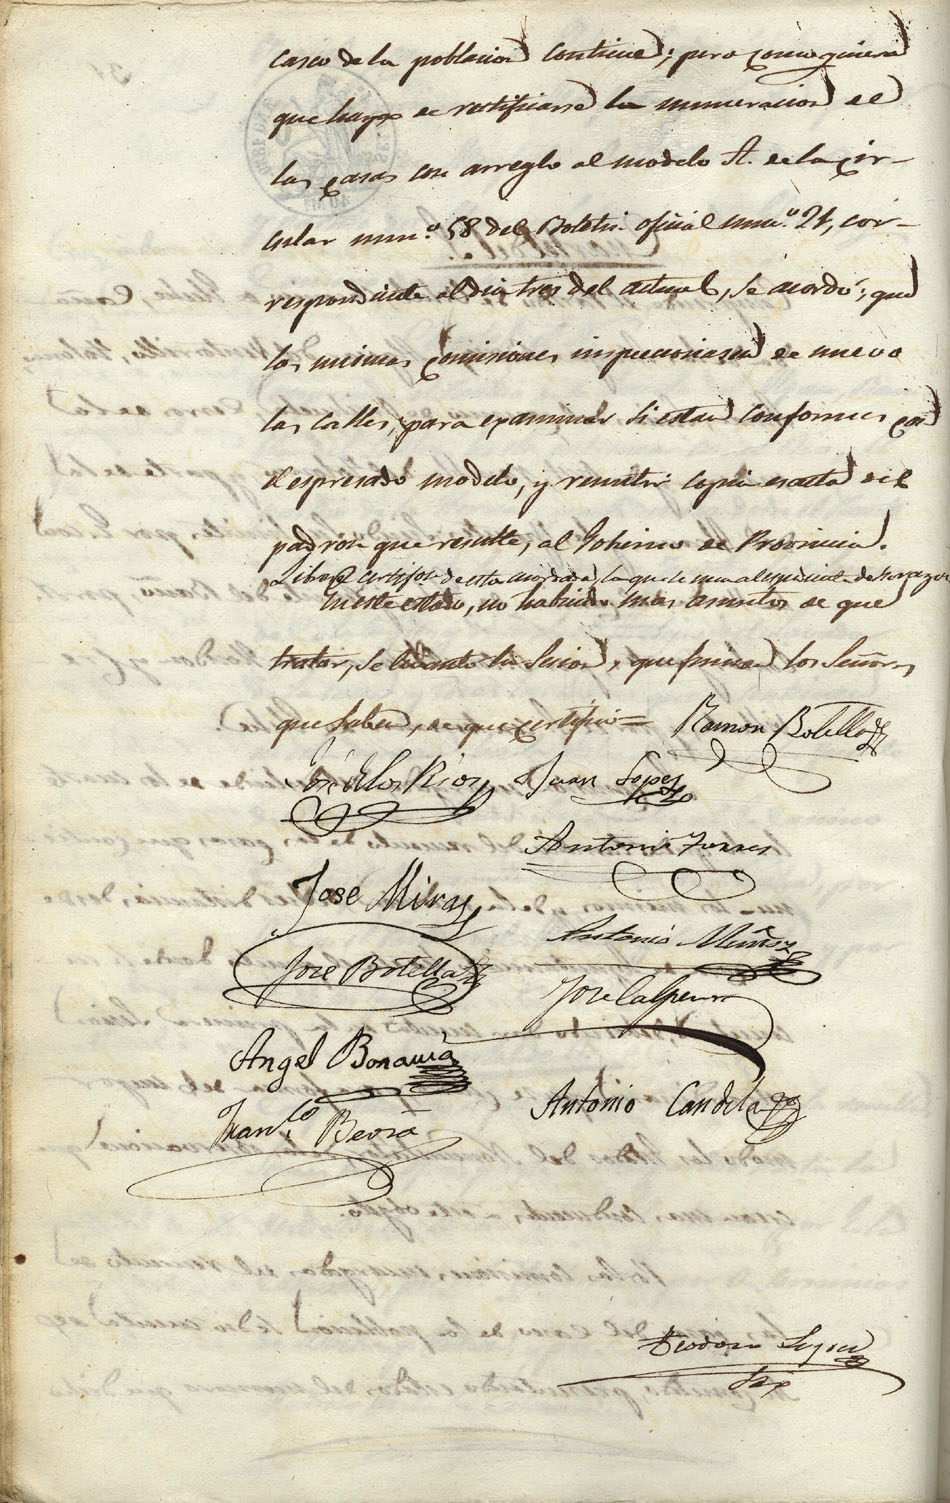 casco de la poblacion continua; pero como quiera
que haya de rectificarse la numeracion de
las casas con arreglo al modelo A. de la cir-
cular num.º 58 del Boletin oficial num.º 24, cor-
respondiente al dia tres del actual, se acordó; que
las mismas comisiones inspeccionasen de nuevo
las calles, para examinar si estan conformes con
el espresado modelo, y remitir copia exacta del
padron que resulte, al Gobierno de Provincia.
Libose certifon de esta acordada, la que se une al espediente de su razon
En este estado, no habiendo mas asuntos de que
tratar, se levantó la Sesion, que firman los Señores
que saben, de que certifico =
Ramon Botella
José de los Rios
Juan Lopez
Antonio Torres
Jose Miras
Antonio Muñoz
Jose Botella
Jose Calpena
Angel Bonavia
Antonio Candela
Fran.co Beviá
Teodoro